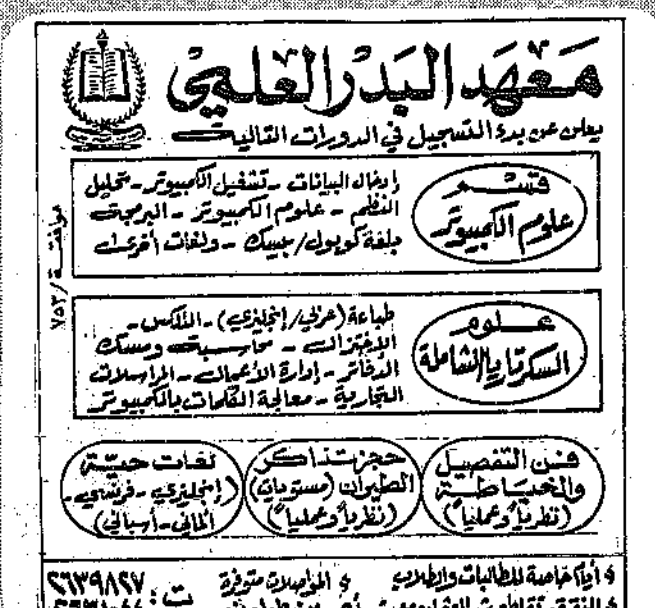 معهد البدر العلمي
يعلن عن بدء التسجيل في الدورات التالية
قسم
علوم الكمبيوتر
إدخال البيانات - تشغيل الكمبيوتر - تحليل
النظم - علوم الكمبيوتر - البرمجة
بلغة كوبول / بيسك - ولغات أخرى
موافقة / ٧٥٣
علوم
السكرتاريا الشاملة
طباعة (عربي/إنجليزي) - التلكس -
الإختزال - محاسبة ومسك
الدفاتر - إدارة الأعمال - المراسلات
التجارية - معالجة الكلمات بالكمبيوتر
فن التفصيل
والخياطة
(نظرياً وعملياً)
حجز تذاكر
الطيران (مستويان)
(نظرياً وعملياً)
لغات حية
(إنجليزي - فرنسي -
ألماني - أسباني)
أيام خاصة للطالبات والطلاب
المواصلات متوفرة
ت: ٢٦٣٩٨٢٧